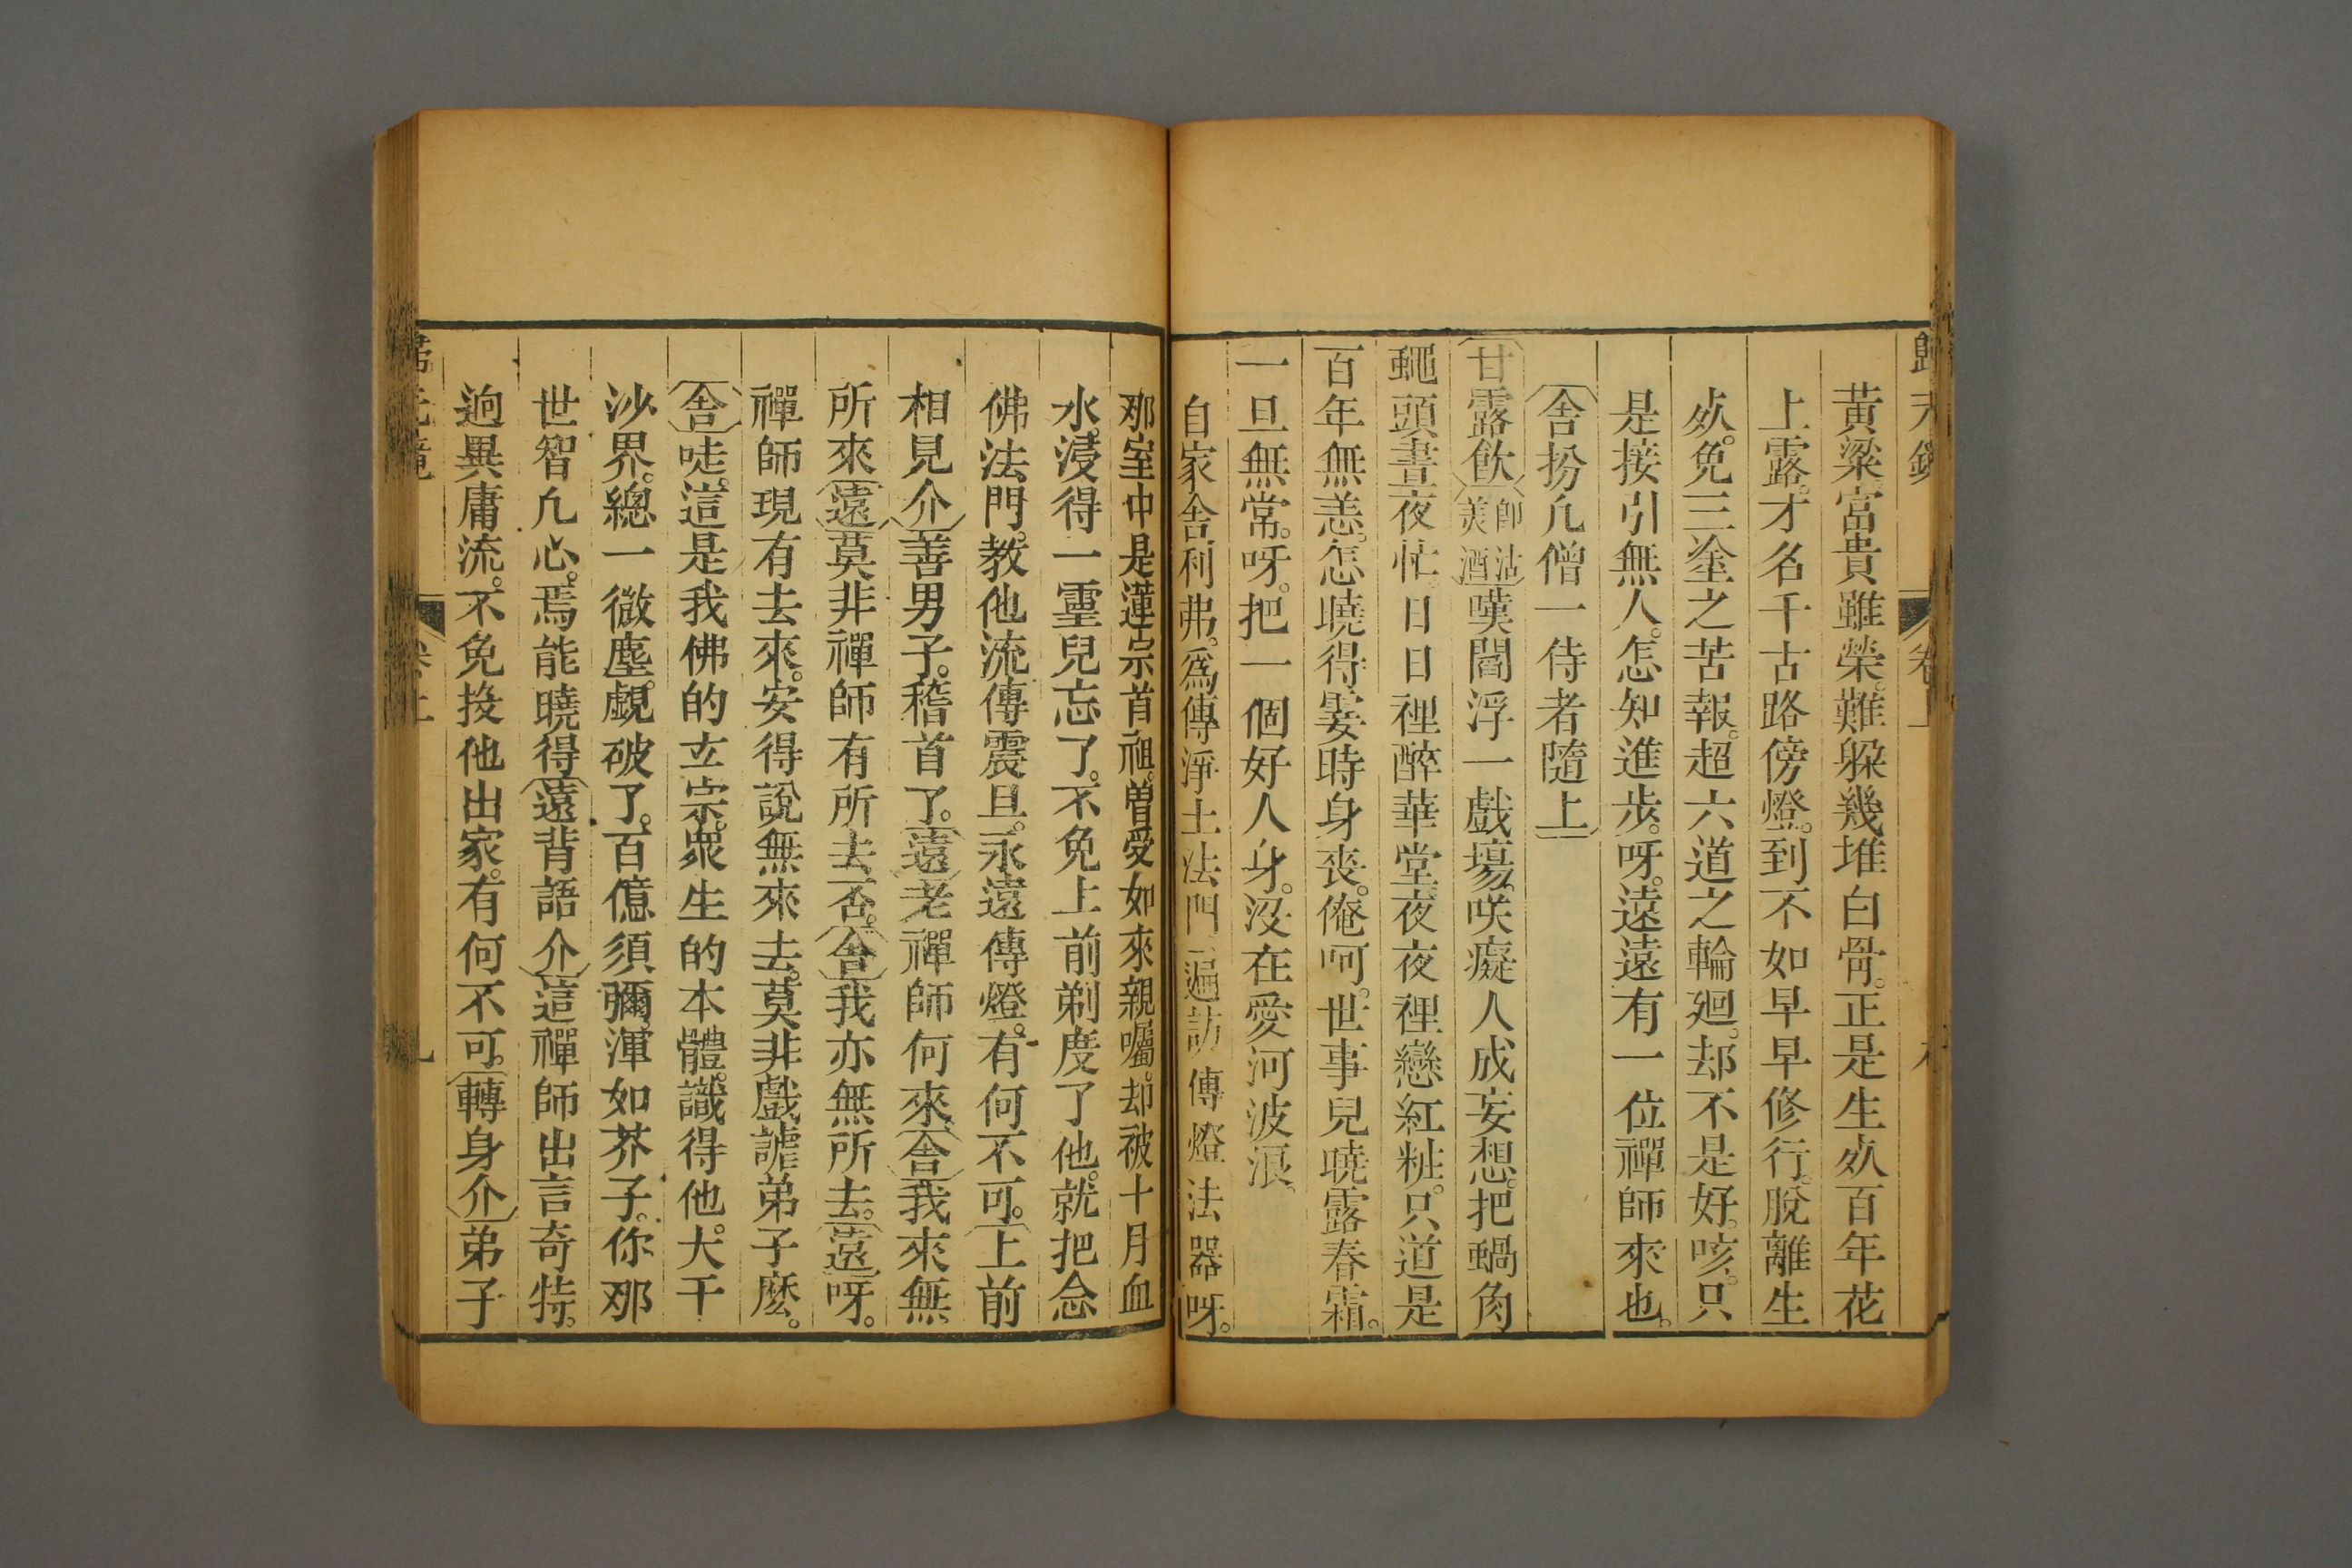 歸元鏡 卷上
黃粱富貴雖榮。難躲幾堆白骨。正是生㱔百年花
上露。才名千古路傍燈。到不如早早修行。脫離生
㱔。免三塗之苦報。超六道之輪廻。却不是好。咳。只
是接引無人。怎知進步。呀。遠遠有一位禪師來也。
舍扮凢僧一侍者隨上
甘露飲即沽美酒嘆閻浮一戲塲。咲癡人成妄想。把蝸角
蠅頭晝夜忙。日日裡醉華堂。夜夜裡戀紅粧。只道是
百年無恙。怎曉得霎時身喪。俺呵。世事兒曉露春霜。
一旦無常。呀。把一個好人身。沒在愛河波浪。
自家舍利弗。爲傳淨土法門。遍訪傳燈法器。呀。
那室中是蓮宗首祖。曽受如來親囑。却被十月血
水。浸得一靈兒忘了。不免上前剃度了他。就把念
佛法門。教他流傳震旦。永遠傳燈。有何不可。上前
相見介善男子。稽首了。遠老禪師何來舍我來無
所來遠莫非禪師有所去否。舍我亦無所去。遠呀。
禪師現有去來。安得說無來去。莫非戲謔弟子麽。
舍哫。這是我佛的立宗。衆生的本體。識得他。大千
沙界。總一微塵。覷破了。百億須彌。渾如芥子。你那
世智凢心。焉能曉得遠背語介這禪師出言奇特。
逈異庸流。不免投他出家。有何不可。轉身介弟子
歸元鏡 卷上 九